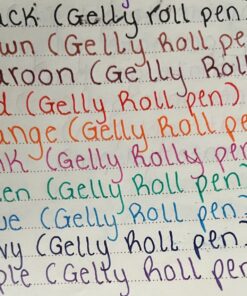 ack (Gelly roll pen
own (Gelly Roll pe
aroon (Gelly Roll
d (Gelly Roll pen)
ange (Gelly Roll pe
nk (Gelly Rolly pen
en (Gelly Roll pen)
ue (Gelly Roll pen)
vy (Gelly Roll pen
ple (Gelly Roll pen